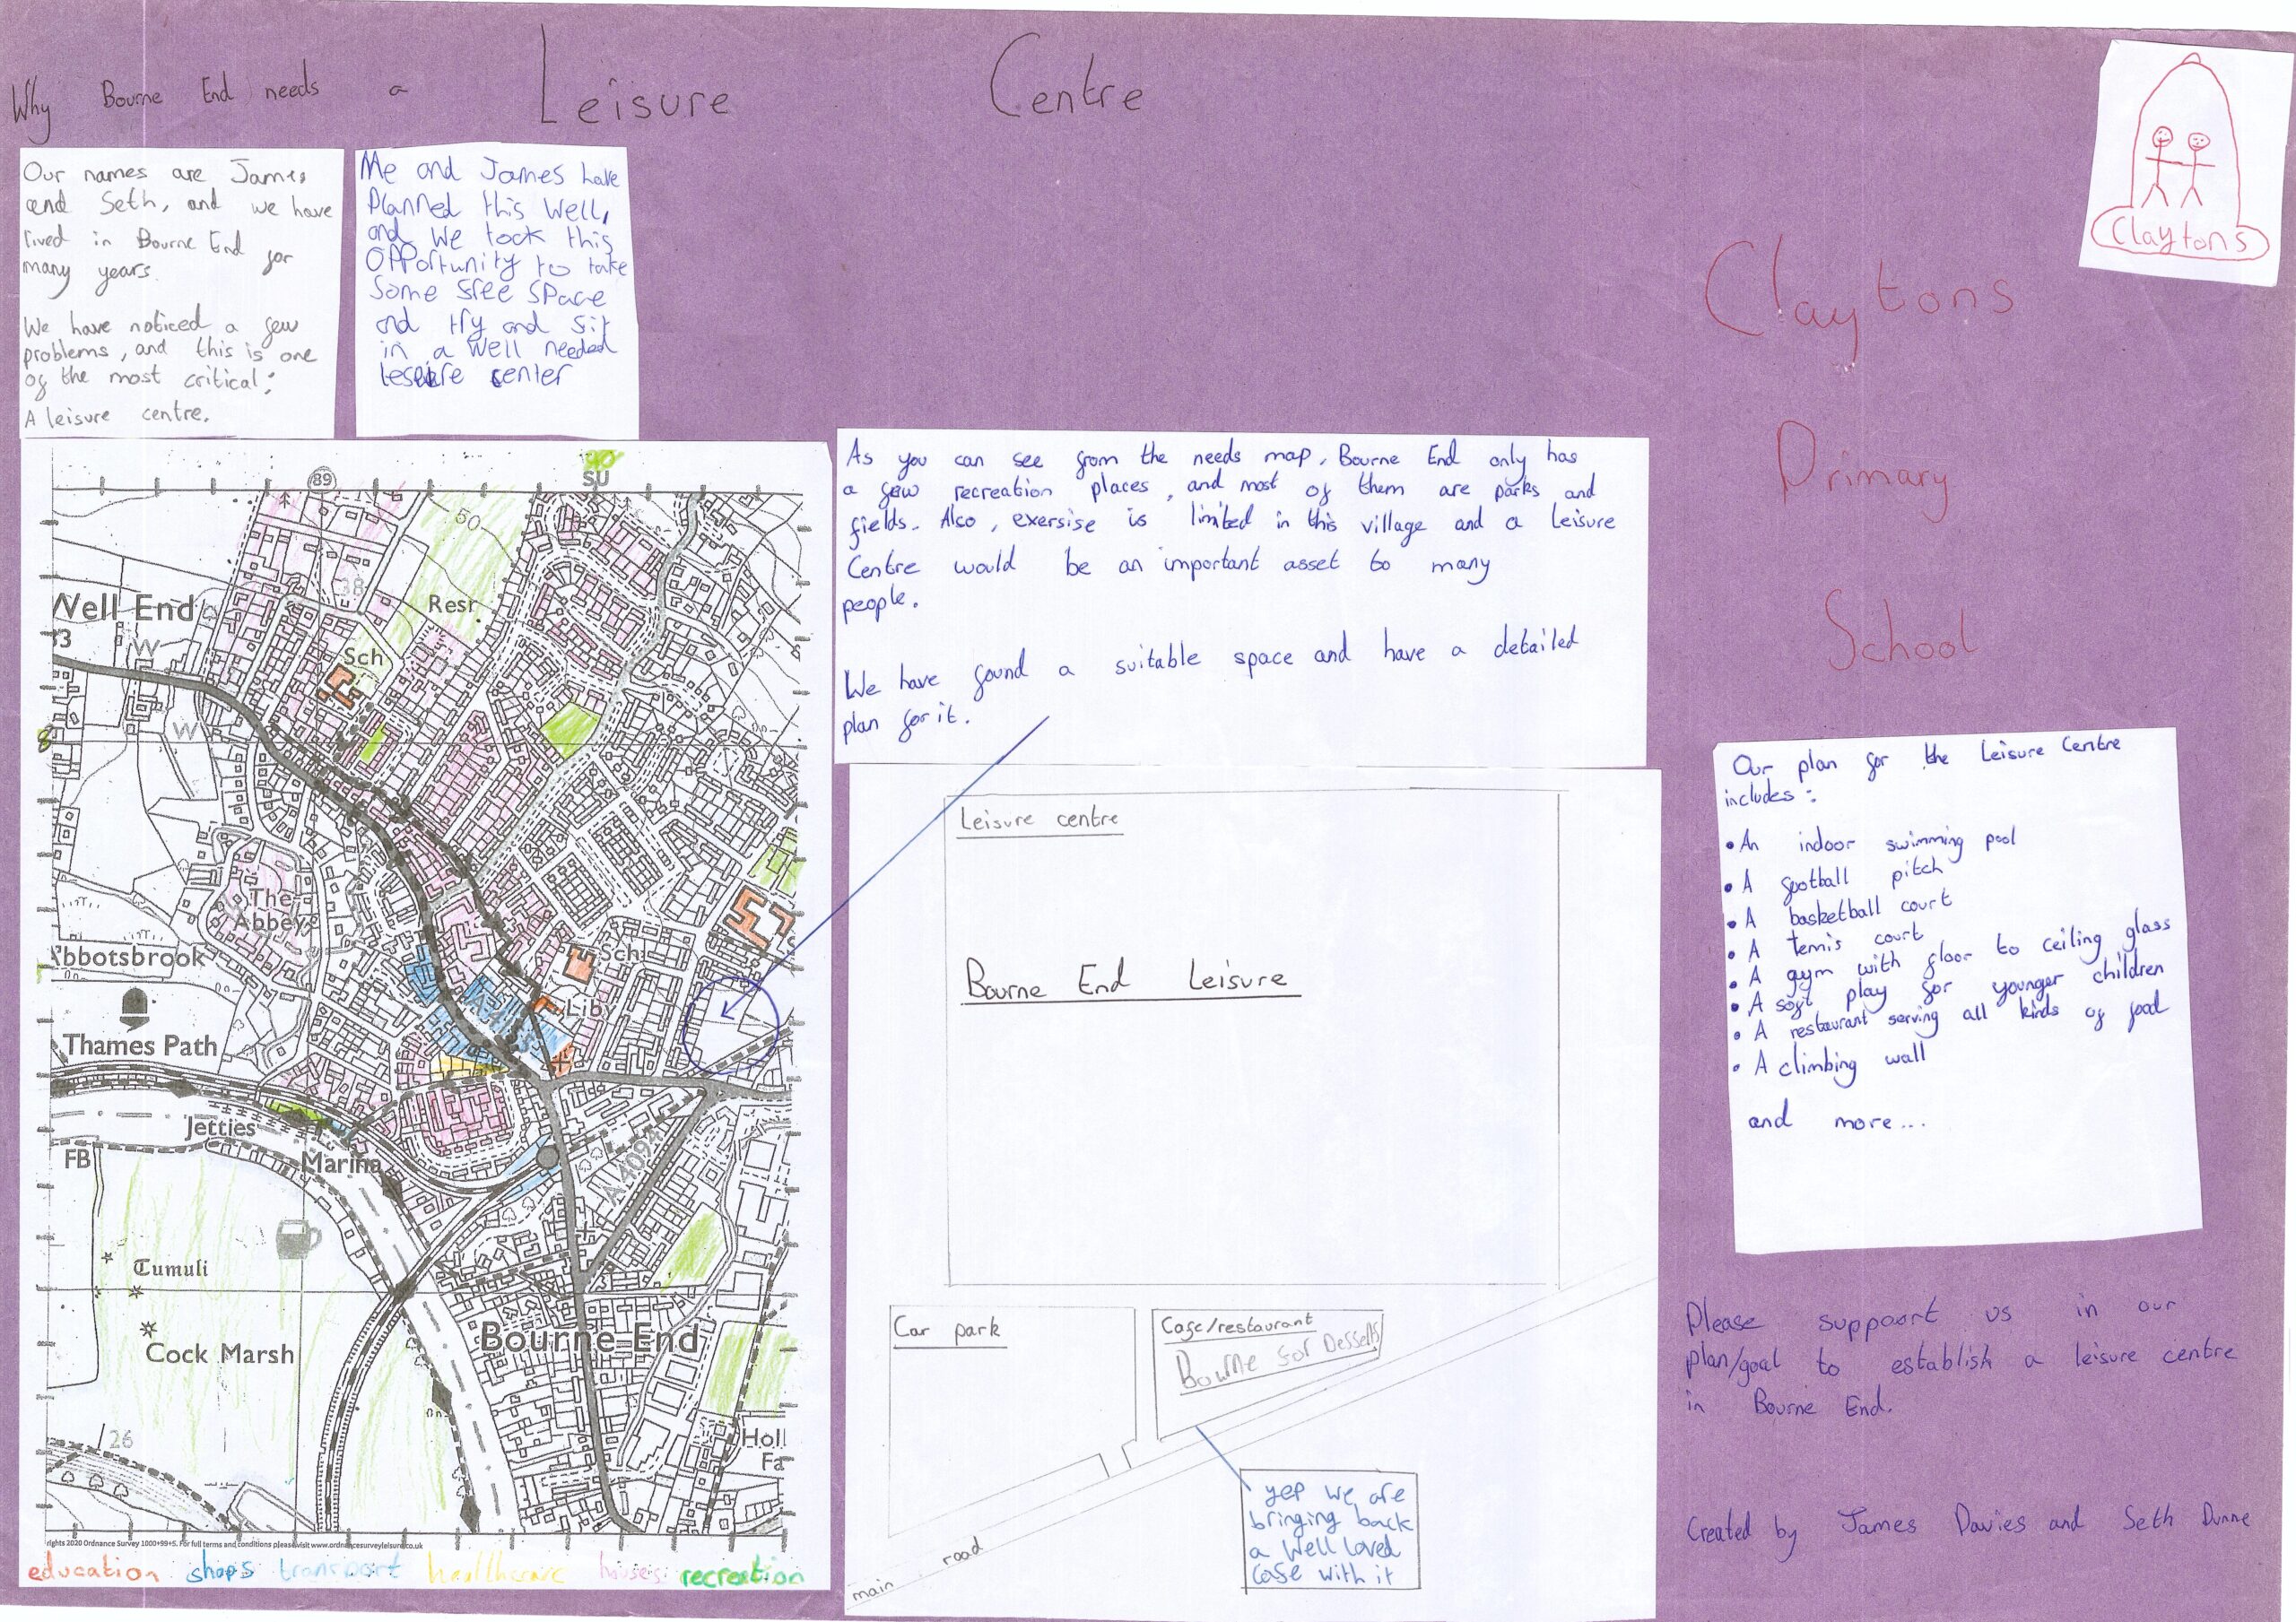 Why Bourne End needs a Leisure Centre
Claytons
Our names are James
and Seth, and we have
lived in Bourne End for
many years.
We have noticed a few
problems, and this is one
of the most critical:
A leisure centre.
Me and James have
Planned this well,
and we took this
opportunity to take
some free space
and try and fit
in a well needed
center
Claytons
Primary
School
As you can see from the needs map, Bourne End only has
a few recreation places, and most of them are parks and
fields. Also, exersise is limited in this village and a leisure
Centre would be an important asset to many
people.
We have found a suitable space and have a detailed
plan for it.
89
SU
50
38
Well End
Resr
Sch
W
W
The
Abbey
bbotsbrook
Sch
Liby
Thames Path
Jetties
FB
Marina
A4094
Tumuli
Cock Marsh
Bourne End
26
Holl
Fa
rights 2020 Ordnance Survey 1000+99+5. For full terms and conditions please visit www.ordnancesurveyleisure.co.uk
education shops transport healthcare houses recreation
Leisure centre
Bourne End Leisure
Car park
Cafe/restaurant
Bourne for Desserts
main road
yep we are
bringing back
a well loved
cafe with it
Our plan for the Leisure Centre
includes:
• An indoor swimming pool
• A football pitch
• A basketball court
• A tennis court
• A gym with floor to ceiling glass
• A soft play for younger children
• A restaurant serving all kinds of food
• A climbing wall
and more...
Please suppoort us in our
plan/goal to establish a leisure centre
in Bourne End.
Created by James Davies and Seth Dunne